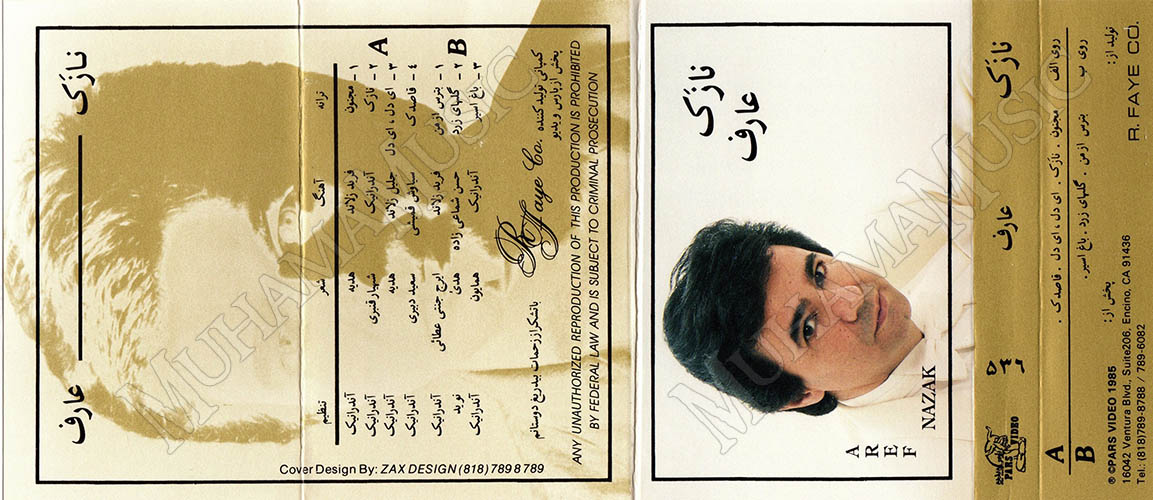 نازک عارف
ترانه آهنگ شعر تنظیم
A
۱ - مجنون فرید زلاند هدیه آندرانیک
۲ - نازک آندرانیک شهیار قنبری آندرانیک
۳ - ای دل ، ای دل جلیل زلاند هدیه آندرانیک
۴ - قاصدک سیاوش قمیشی سعید دبیری آندرانیک
B
۱ - بترس از من فرید زلاند ایرج جنتی عطائی آندرانیک
۲ - گلهای زرد حسن شماعی زاده هدی نوید
۳ - باغ اسیر آندرانیک همایون آندرانیک
کمپانی تولید کننده R. Faye Co. باتشکر از زحمات بیدریغ دوستانم
پخش از پارس ویدیو
ANY UNAUTHORIZED REPRODUCTION OF THIS PRODUCTION IS PROHIBITED
BY FEDERAL LAW AND IS SUBJECT TO CRIMINAL PROSECUTION
Cover Design By: ZAX DESIGN (818) 789 8789
نازک
عارف
AREF
NAZAK
نازک عارف
PARS VIDEO
روی الف مجنون . نازک . ای دل ، ای دل . قاصدک . A
روی ب بترس از من . گلهای زرد . باغ اسیر . B
تولید از:
R. FAYE CO.
پخش از:
℗ ©PARS VIDEO 1985
16042 Ventura Blvd., Suite206, Encino, CA 91436
Tel.: (818)789-8788 / 789-6082
MUHAMAMUSIC
MUHAMAMUSIC